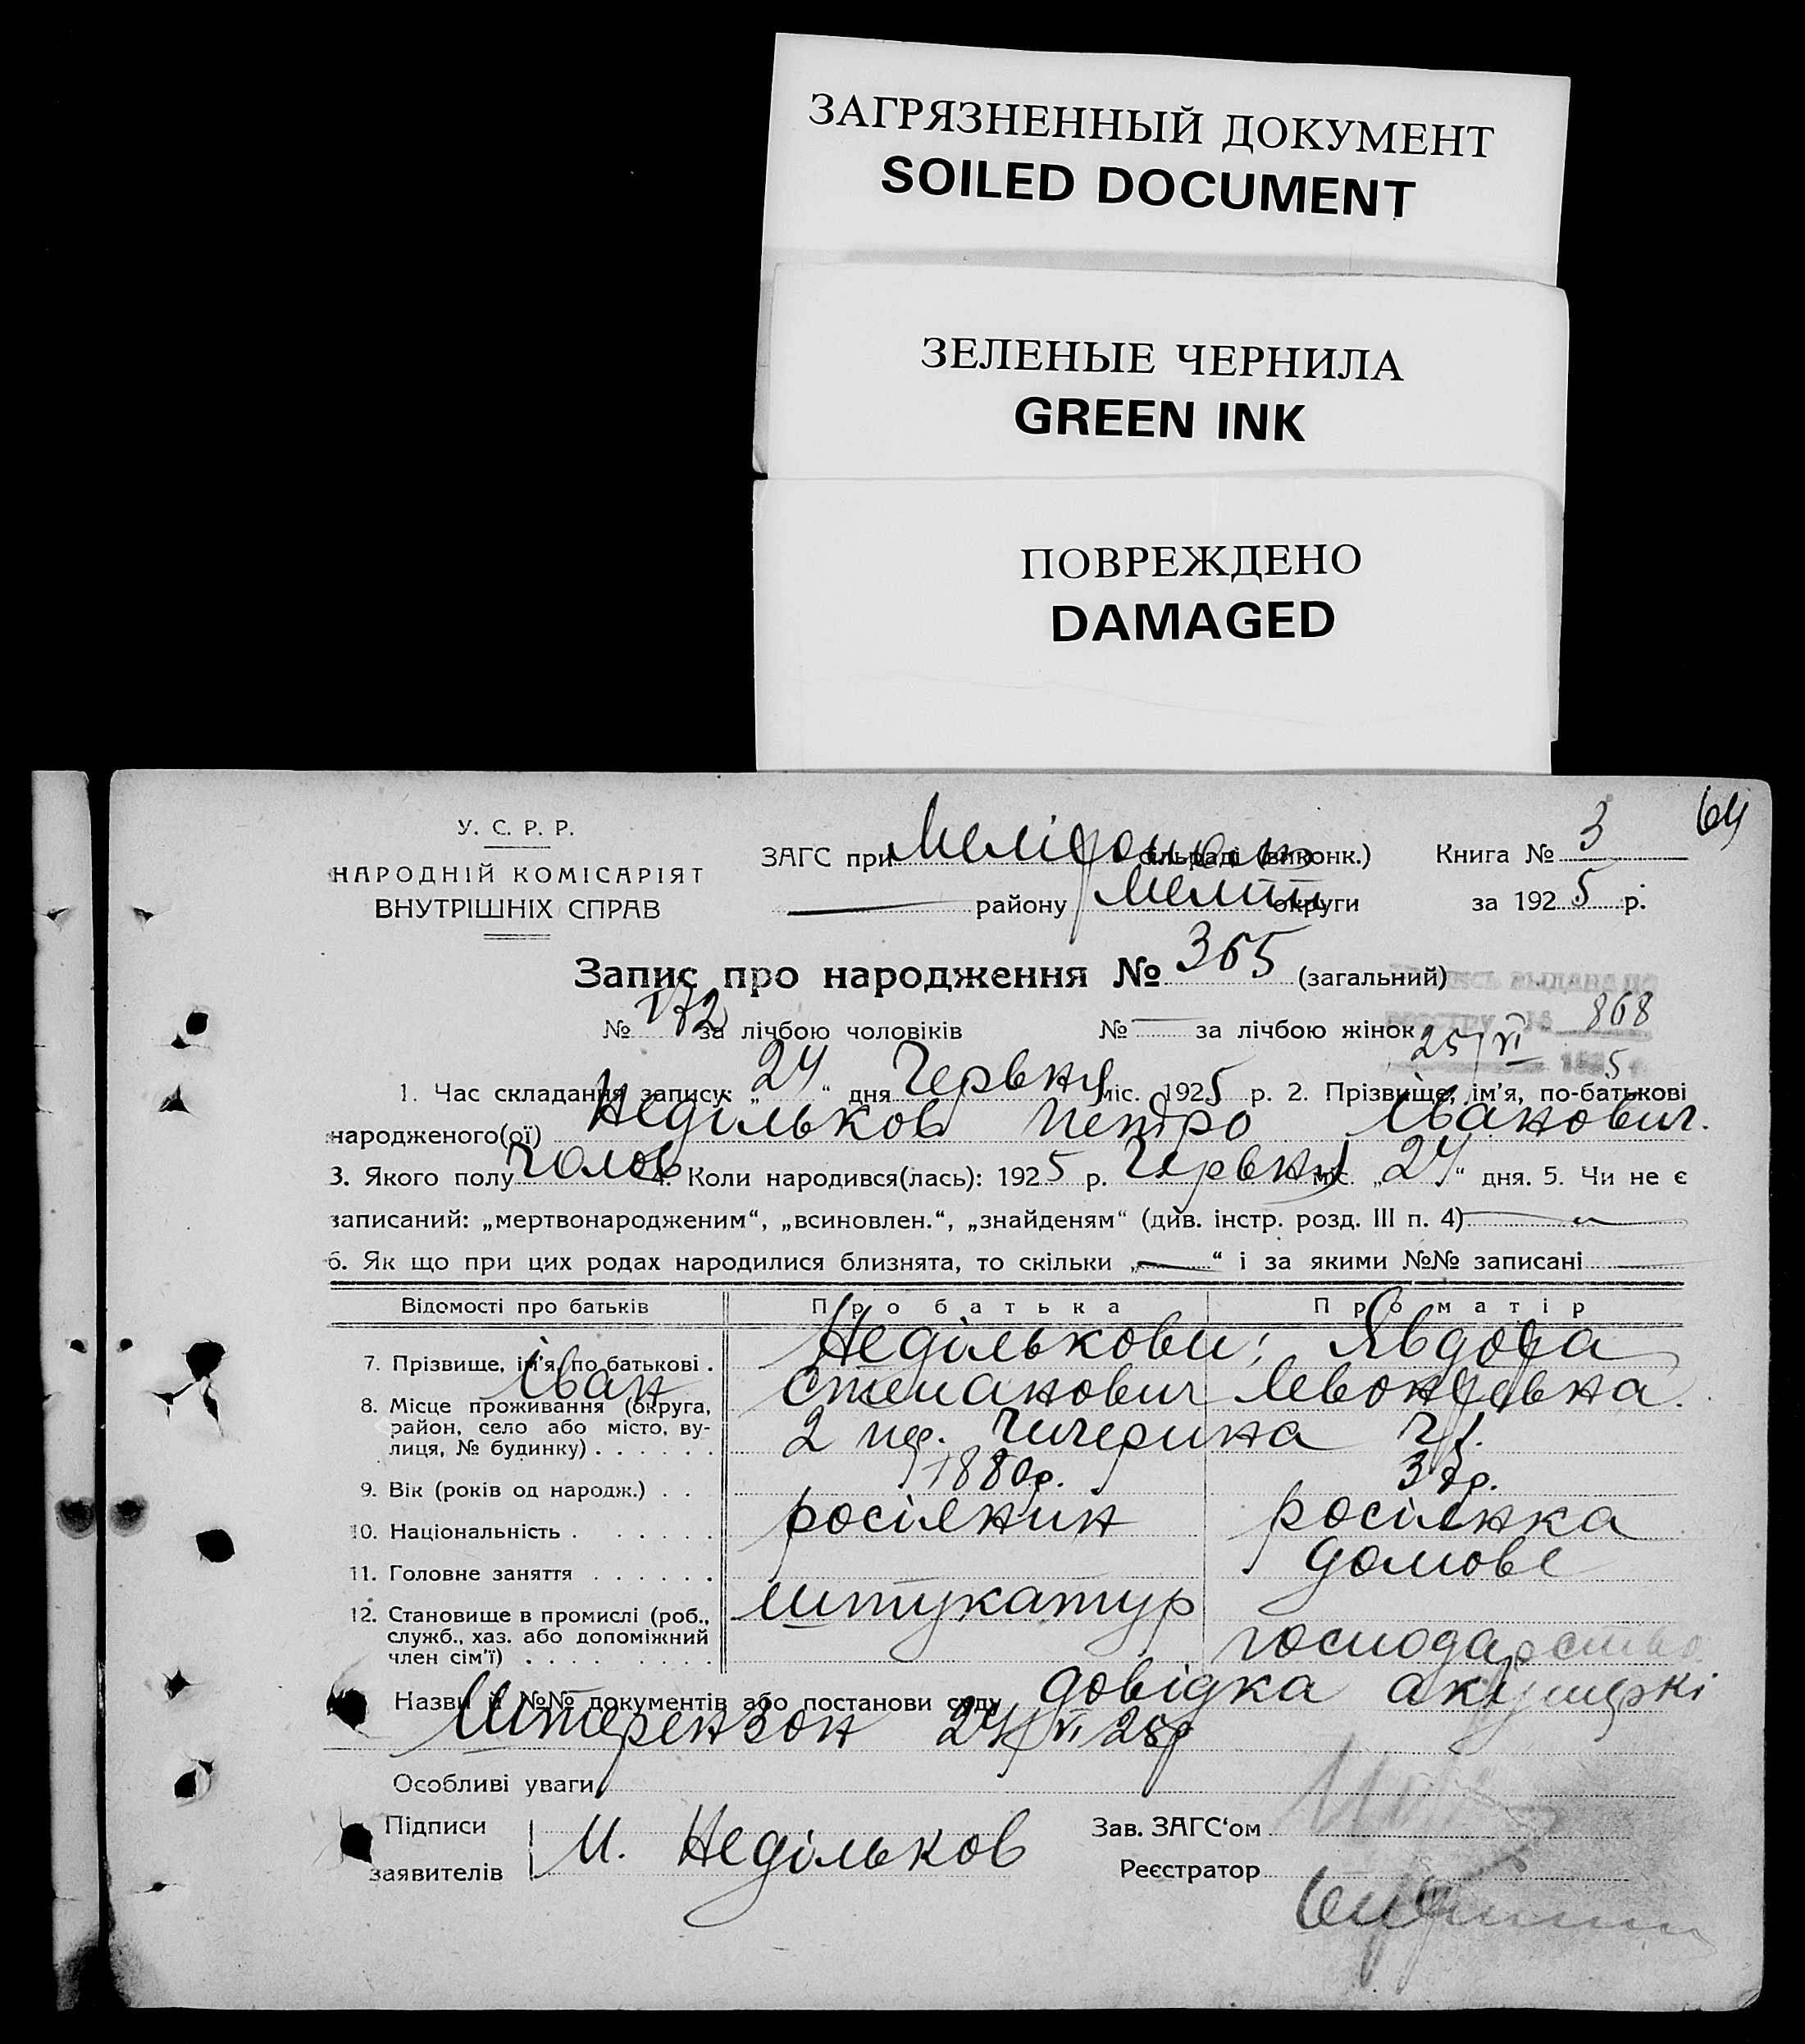 ЗАГРЯЗНЕННЫЙ ДОКУМЕНТ
SOILED DOCUMENT
ЗЕЛЕНЫЕ ЧЕРНИЛА
GREEN INK
ПОВРЕЖДЕНО
DAMAGED
64
У. С. Р. Р.
НАРОДНІЙ КОМІСАРІЯТ
ВНУТРІШНІХ СПРАВ
ЗАГС при сільраді (виконк.) Книга № 3
району Меліт округи за 1925 р.
Запис про народження № 365 (загальний)
выдана по
№ 172 за лічбою чоловіків № — за лічбою жінок
реестру № 868
25/VI 1925 г.
1. Час складання запису: „24“ дня Червня міс. 1925 р. 2. Прізвище, ім'я, по-батькові
народженого(ої) Недільков Петро Іванович.
3. Якого полу чолов 4. Коли народився(лась): 1925 р. Червня міс. „24“ дня. 5. Чи не є
записаний: „мертвонародженим“, „всиновлен.“, „знайденям“ (див. інстр. розд. III п. 4) —
6. Як що при цих родах народилися близнята, то скільки „—“ і за якими №№ записані —
Відомості про батьків Про батька Про матір
7. Прізвище, ім'я, по батькові . Недількови: Явдоха
Іван Степанович Левонтівна.
8. Місце проживання (округа, район, село або місто, вулиця, № будинку) . . . . . . 2 пер. Чичерина
9. Вік (років од народж.) . . 1880р. 37р.
10. Національність . . . . . . росіянин росіянка
11. Головне заняття . . . . . . штукатур домове
12. Становище в промислі (роб., служб., хаз. або допоміжний член сім'ї) . . . . . . . . господарство
Назви й №№ документів або постанови суду довідка акушерки
Штерензон 24/VI 25р
Особливі уваги
Підписи
заявителів И. Недільков
Зав. ЗАГС'ом
Реєстратор